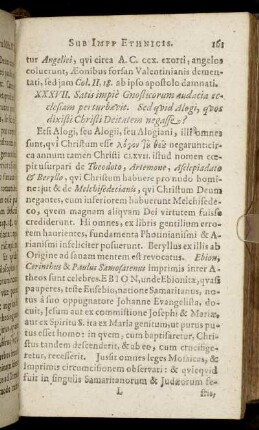 SUB IMPP ETHNICIS. 161
tur Angelici, qui circa A. C. CCX. exorsi, angelos
coluerunt, Æonibus forsan Valentinianis demen-
tati, sed jam Col. H. 18. ab ipso apostolo damnati.
XXXVII. Satis impiè Gnosticorum audacia ec-
clesiam perturbavit. Sed quid Alogi, quos
dixisti Christi Deitatem negasse?
Etsi Alogi, seu Alogii, seu Alogiani, illi omnes
sunt, qui Christum esse λόγον τῦ θεῦ negarunt: cir-
ca annum tamen Christi CLXVII. istud nomen cœ-
pit usurpari de Theodoto, Artemone, Asclepiodoto
& Beryllo, qui Christum habuere pro nudo homi-
ne: jut & de Melchisedecianis, qui Christum Deum
negantes, eum inferiorem habuerunt Melchisede-
co, quem magnam aliquam Dei virtutem fuisse
crediderunt. Hi omnes, ex libris gentilium erro-
rem haurientes, fundamenta Photinianismi & A-
rianismi infeliciter posuerunt. Beryllus ex illis ab
Origine ad sanam mentem est revocatus. Ebion,
Cerinthus & Paulus Samosatenus imprimis inter A-
theos sunt celebres. EBION, unde Ebionitæ, quasi
pauperes, teste Eusebio, natione Samaritanus, no-
tus à suo oppugnatore Johanne Evangelista, do-
cuit, Jesum aut ex commistione Josephi & Mariæ,
aut ex Spiritu S. ita ex Maria genitum, ut purus pu-
tus esset homo: in quem, cum baptisaretur, Chri-
stus tandem descenderit, & ab eo, cum crucifige-
retur, recesserit. Jussit omnes leges Mosaicas, &
imprimis circumcisionem observari: & quicquid
fuit in singulis Samaritanorum & Judæorum se-
L ctis,